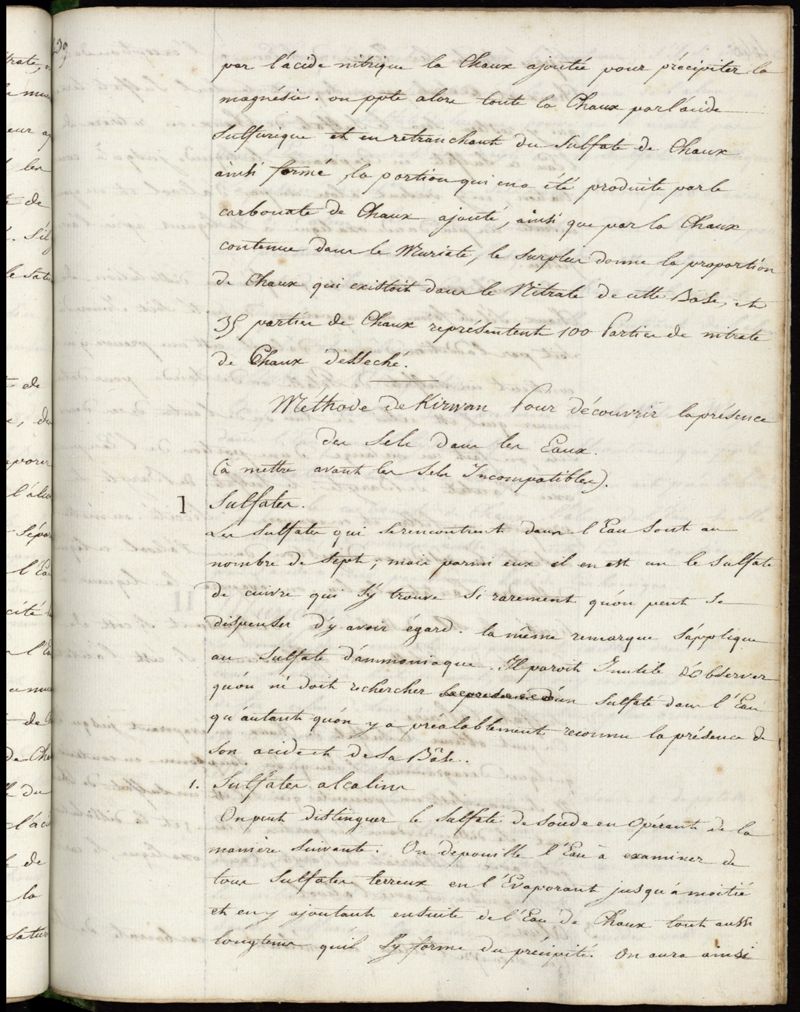 par l'acide nitrique la Chaux ajoutée pour précipiter la
magnésie. on ppte alors toute la Chaux par l'acide
Sulfurique et en retranchant du Sulfate de Chaux
ainsi formé, la portion qui en a été produite par le
carbonate de Chaux ajouté, ainsi que par la Chaux
contenue dans le Muriate, le surplus donne la proportion
de Chaux qui existoit dans le Nitrate de cette Base, et
35 parties de Chaux représentent 100 Parties de nitrate
de Chaux desseché.
Methode de Kirwan Pour découvrir la présence
des Sels dans les Eaux.
(à mettre avant les Sels Incompatibles).
1 Sulfates.
Les Sulfates qui se rencontrent dans l'Eau sont au
nombre de Sept; mais parmi eux il en est un le Sulfate
de cuivre qui s'y trouve si rarement qu'on peut se
dispenser d'y avoir égard. la même remarque s'applique
au Sulfate d'ammoniaque. Il paroit Inutile d'Observer
qu'on ne doit rechercher la présence d'un Sulfate dans l'Eau
qu'autant qu'on y a préalablement reconnu la présence de
son acide et de sa Bâse.
1. Sulfates alcalins
On peut distinguer le Sulfate de Soude en Opérant de la
manière Suivante. On depouille l'Eau à examiner de
tous Sulfates terreux en l'Evaporant jusqu'à moitié
et en y ajoutant ensuite de l'Eau de Chaux tout aussi
longtems qu'il s'y forme du précipité. On aura ainsi